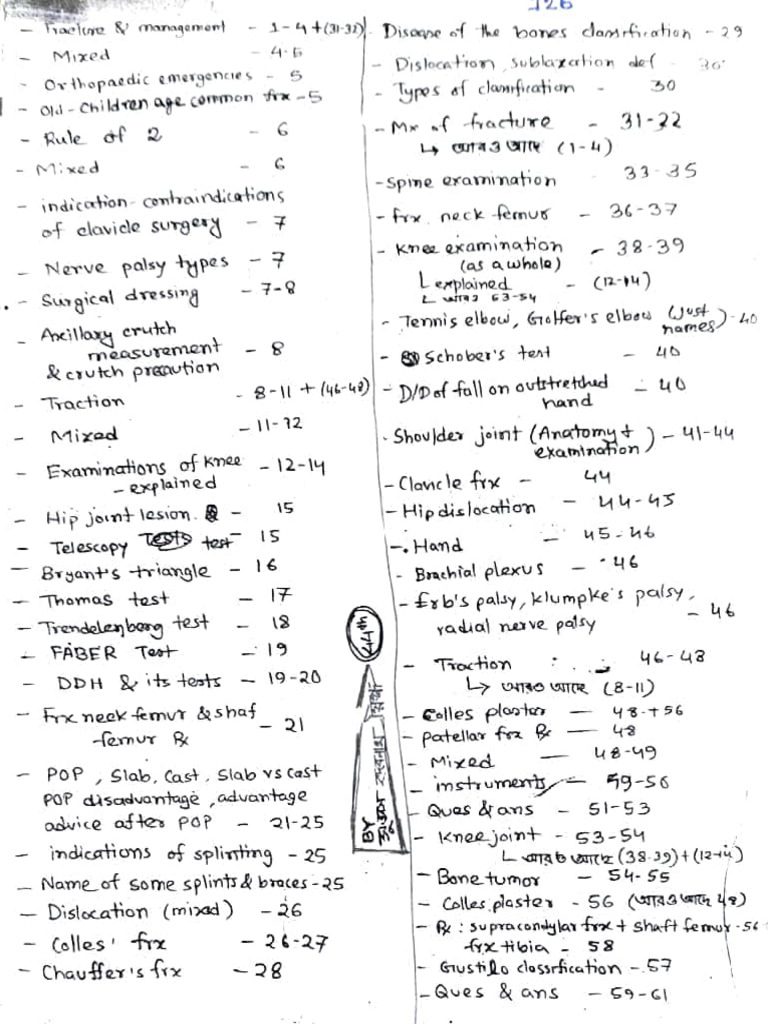 126
- Fracture & management - 1-4+(31-32)
- Mixed - 4-5
- Orthopaedic emergencies - 5
- Old-Children age common frx - 5
- Rule of 2 - 6
- Mixed - 6
- indication-contraindications
of clavicle surgery - 7
- Nerve palsy types - 7
- Surgical dressing - 7-8
- Axillary crutch
measurement - 8
& crutch precaution
- Traction - 8-11 + (46-48)
- Mixed - 11-12
- Examinations of knee - 12-14
- explained
- Hip joint lesion. - 15
- Telescopy test - 15
- Bryant's triangle - 16
- Thomas test - 17
- Trendelenberg test - 18
- FABER Test - 19
- DDH & its tests - 19-20
- Frx neck femur & shaf
femur Rx - 21
- POP, Slab, Cast, Slab vs cast
POP disadvantage, advantage
advice after POP - 21-25
- indications of splinting - 25
- Name of some splints & braces - 25
- Dislocation (mixed) - 26
- Colles' frx - 26-27
- Chauffer's frx - 28
Disease of the bones classification - 29
- Dislocation, sublaxation def - 30
- Types of classification - 30
- Mx of fracture - 31-32
↳ আরও আছে (1-4)
- Spine examination 33-35
- frx neck femur - 36-37
- Knee examination - 38-39
(as a whole)
explained - (12-14)
আরও 53-54
- Tennis elbow, Golfer's elbow (Just names) - 40
- Schober's test - 40
- D/D of fall on outstretched - 40
hand
- Shoulder joint (Anatomy + examination) - 41-44
- Clavicle frx - 44
- Hip dislocation - 44-45
- Hand - 45-46
- Brachial plexus - 46
- Erb's palsy, klumpke's palsy,
radial nerve palsy - 46
- Traction : 46-48
↳ আরও আছে (8-11)
- Colles plaster - 48 + 56
- patellar frx Rx - 48
- Mixed - 48-49
- instruments - 49-56
- Ques & ans - 51-53
- Knee joint - 53-54
আরও আছে (38-39)+(12-14)
- Bone tumor - 54-55
- Colles plaster - 56 (আরও আছে 48)
- Rx: supracondylar frx + shaft femur - 56
frx tibia - 58
- Gustilo classification - 57
- Ques & ans - 59-61
44th
BY